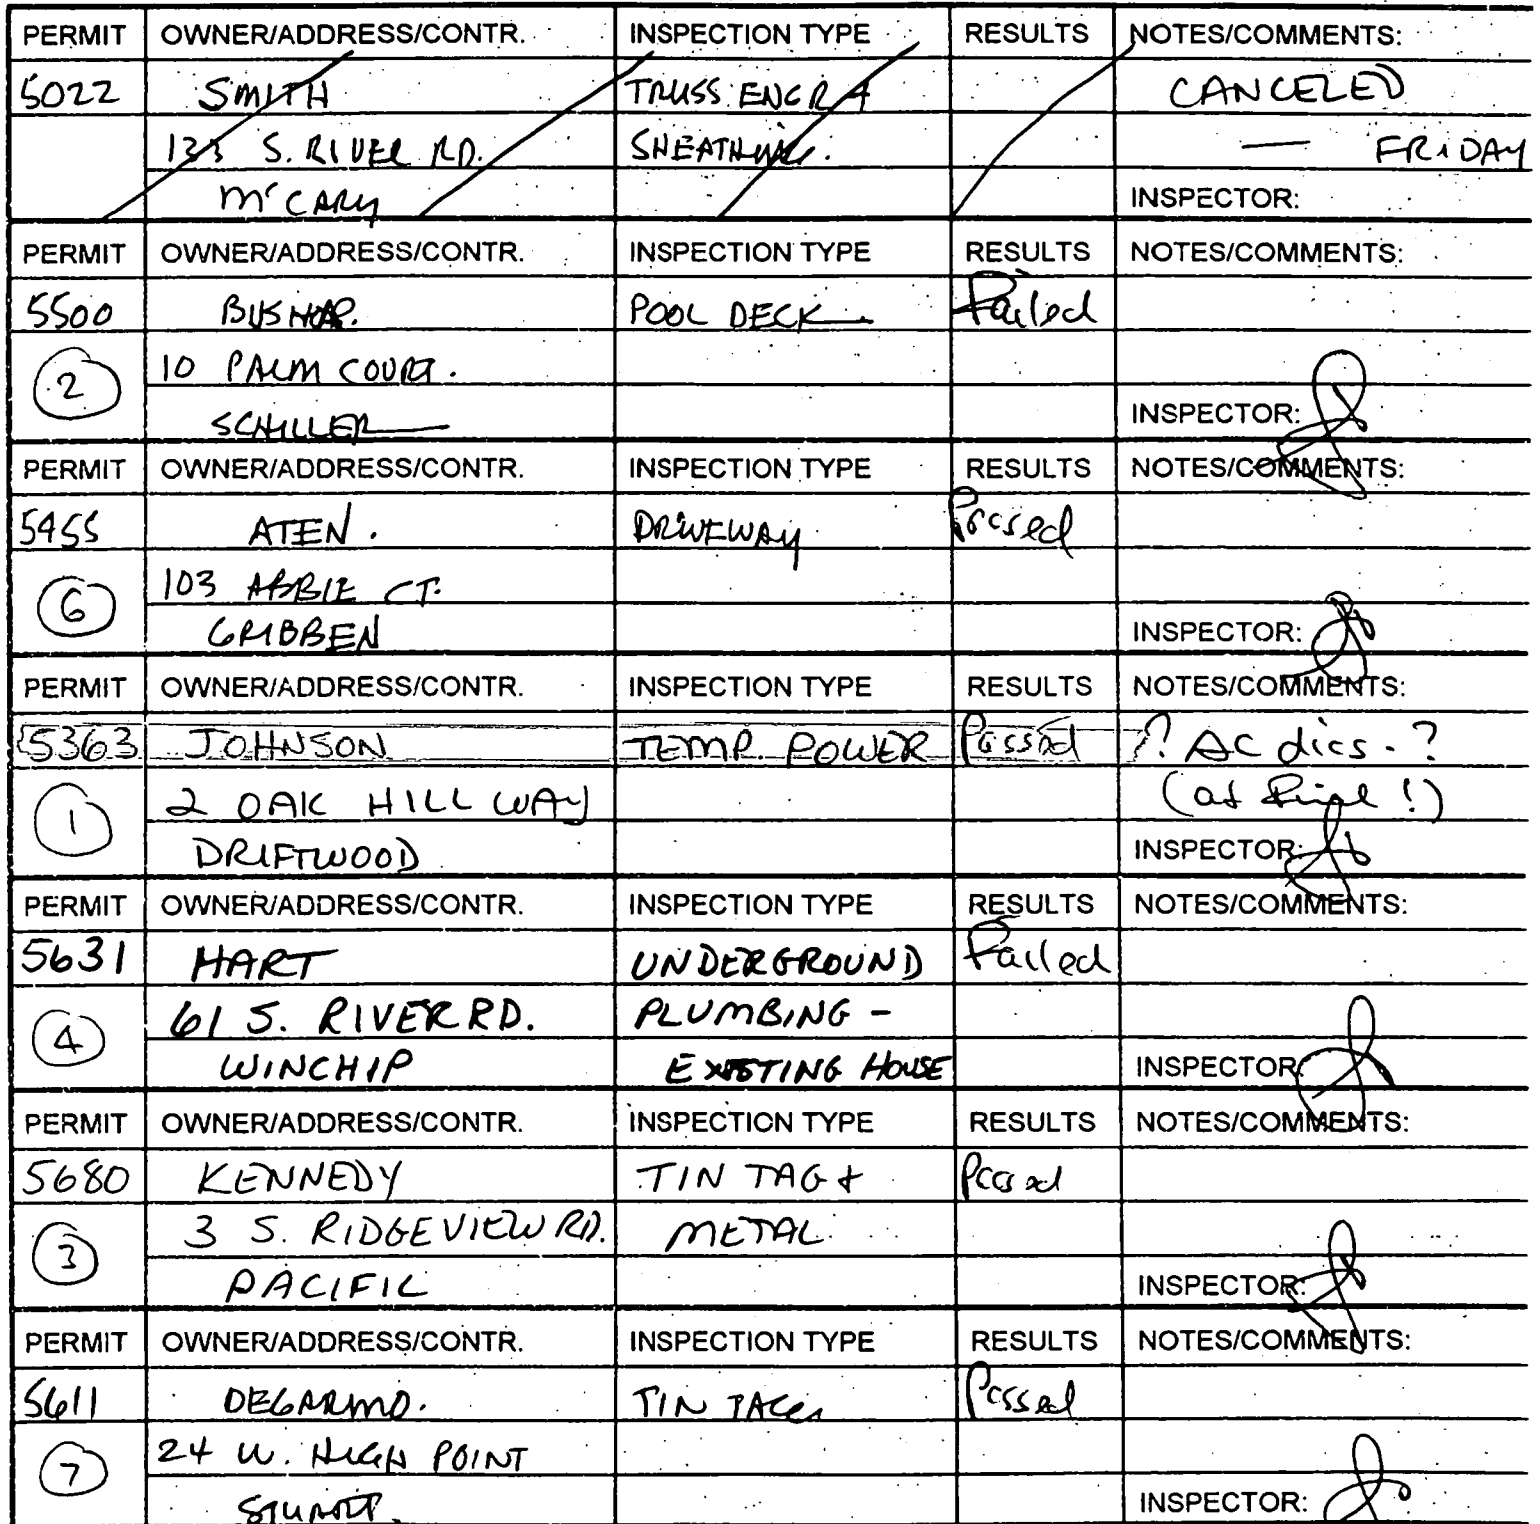 PERMIT OWNER/ADDRESS/CONTR. INSPECTION TYPE RESULTS NOTES/COMMENTS:
5022 SMITH TRUSS ENGR & CANCELED
133 S. RIVER RD. SHEATHING. — FRIDAY
McCARY INSPECTOR:
PERMIT OWNER/ADDRESS/CONTR. INSPECTION TYPE RESULTS NOTES/COMMENTS:
5500 BUSHOP. POOL DECK Failed
2 10 PALM COURT.
SCHILLER INSPECTOR:
PERMIT OWNER/ADDRESS/CONTR. INSPECTION TYPE RESULTS NOTES/COMMENTS:
5455 ATEN. DRIVEWAY Passed
6 103 ABBIE CT.
GRIBBEN INSPECTOR:
PERMIT OWNER/ADDRESS/CONTR. INSPECTION TYPE RESULTS NOTES/COMMENTS:
5363 JOHNSON TEMP. POWER Passed ? AC dics. ?
1 2 OAK HILL WAY (at final !)
DRIFTWOOD INSPECTOR:
PERMIT OWNER/ADDRESS/CONTR. INSPECTION TYPE RESULTS NOTES/COMMENTS:
5631 HART UNDERGROUND Failed
4 61 S. RIVER RD. PLUMBING -
WINCHIP EXISTING HOUSE INSPECTOR:
PERMIT OWNER/ADDRESS/CONTR. INSPECTION TYPE RESULTS NOTES/COMMENTS:
5680 KENNEDY TIN TAG & Passed
3 3 S. RIDGEVIEW RD. METAL
PACIFIC INSPECTOR:
PERMIT OWNER/ADDRESS/CONTR. INSPECTION TYPE RESULTS NOTES/COMMENTS:
5611 DEGARMO. TIN TAGS Passed
7 24 W. HIGH POINT
STUART. INSPECTOR: